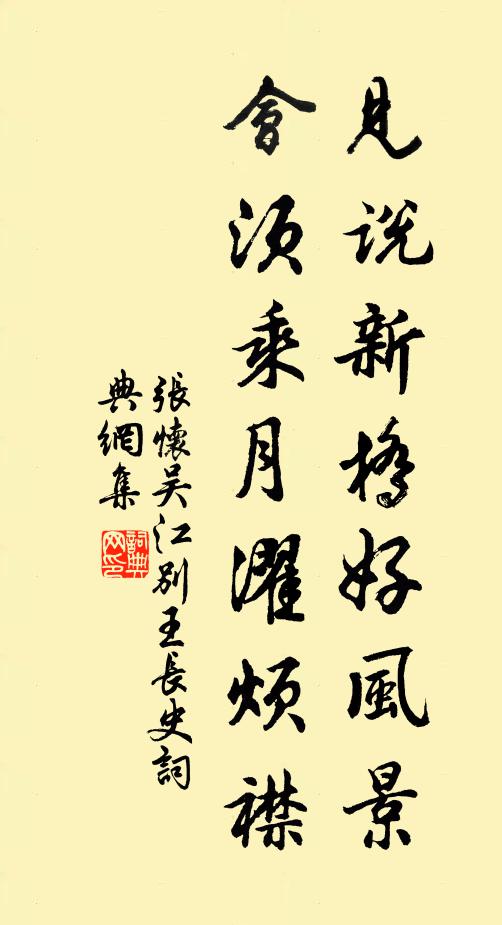 見説新橋好風景
會須乘月濯煩襟
張懷吴江别王長史詞
典網集
詞典网印